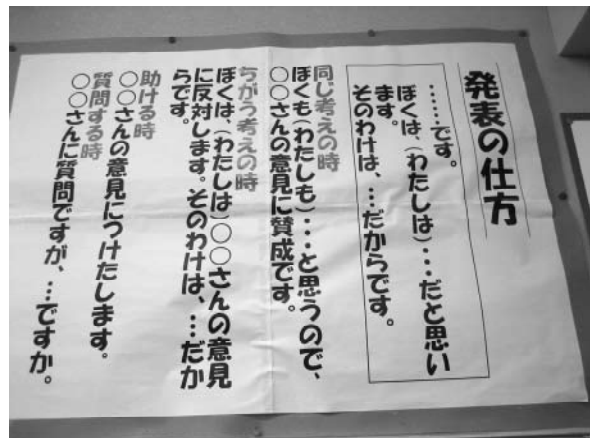 発表の仕方
……です。
ぼくは、(わたしは)・・・だと思い
ます。
そのわけは、…だからです。
同じ考えの時
ぼくも(わたしも)・・・と思うので、
○○さんの意見に賛成です。
ちがう考えの時
ぼくは、(わたしは)○○さんの意見
に反対します。そのわけは、…だか
らです。
助ける時
○○さんの意見につけたします。
質問する時
○○さんに質問ですが、…ですか。